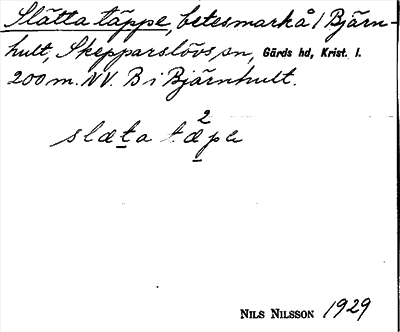 Slätta täppe, betesmark å 1 Bjärn-
hult, Skepparslövs sn, Gärds hd, Krist. l.
200 m. NV. B i Bjärnhult.
slæta tæ²pe
NILS NILSSON 1929